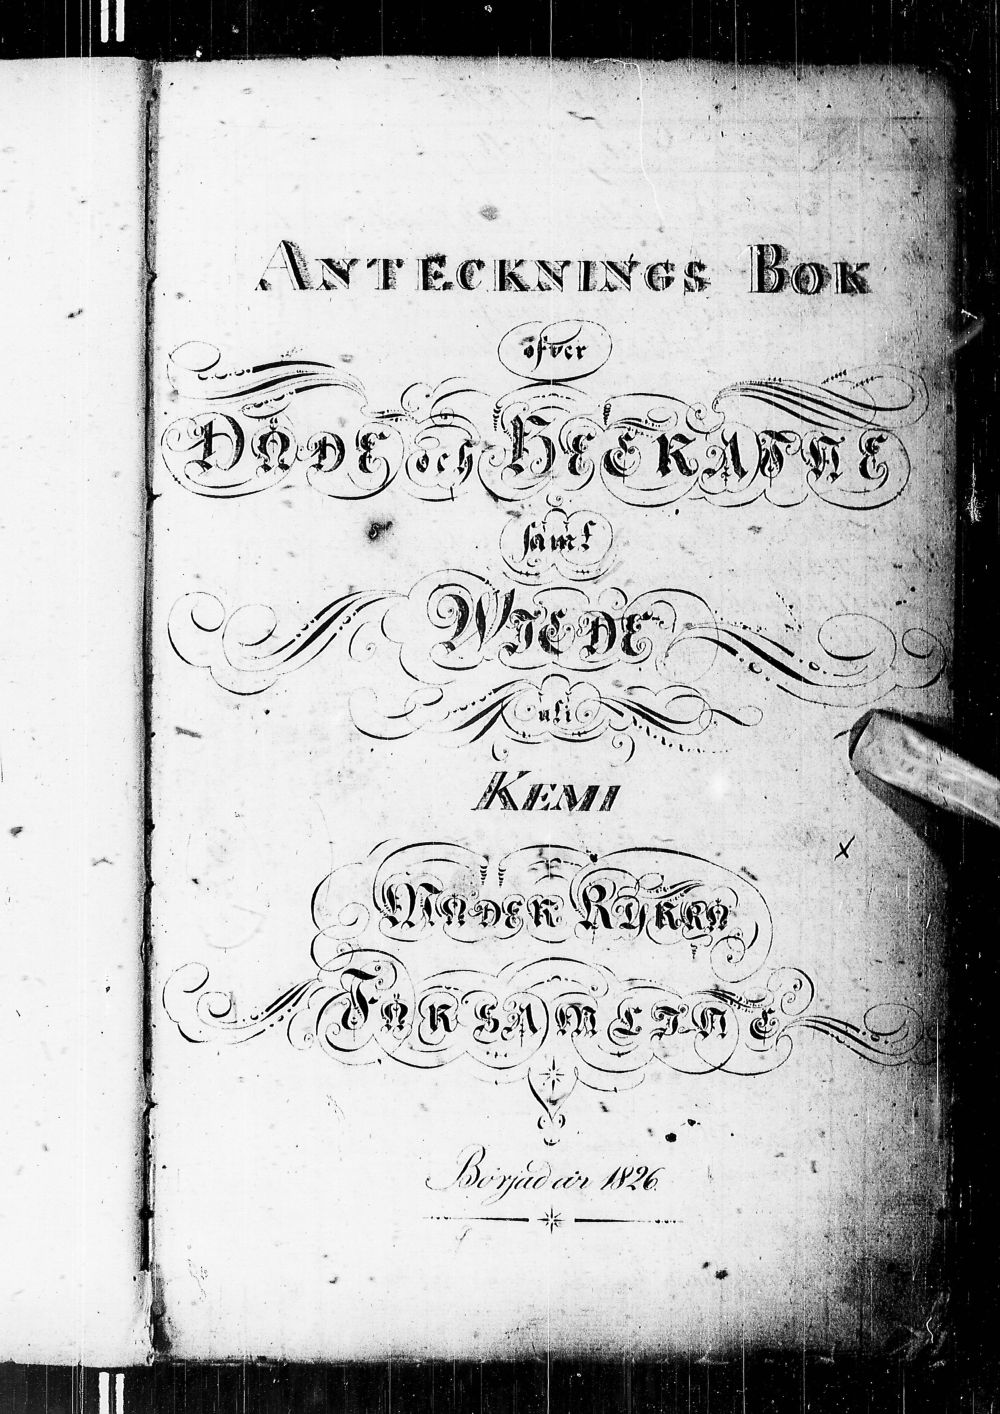 ANTECKNINGS BOK
öfver
DÖDE och BEGRAFNE
samt
WIGDE
uti
KEMI
MODER KYRKO
FÖRSAMLING
Börjad år 1826.
x